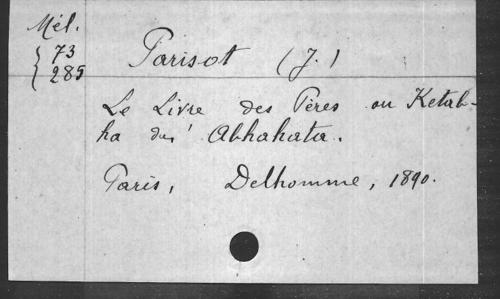 Mél.
73
285
Parisot (J.)
Le Livre des Pères ou Ketab-
ha du' Abhahata.
Paris, Delhomme, 1890.